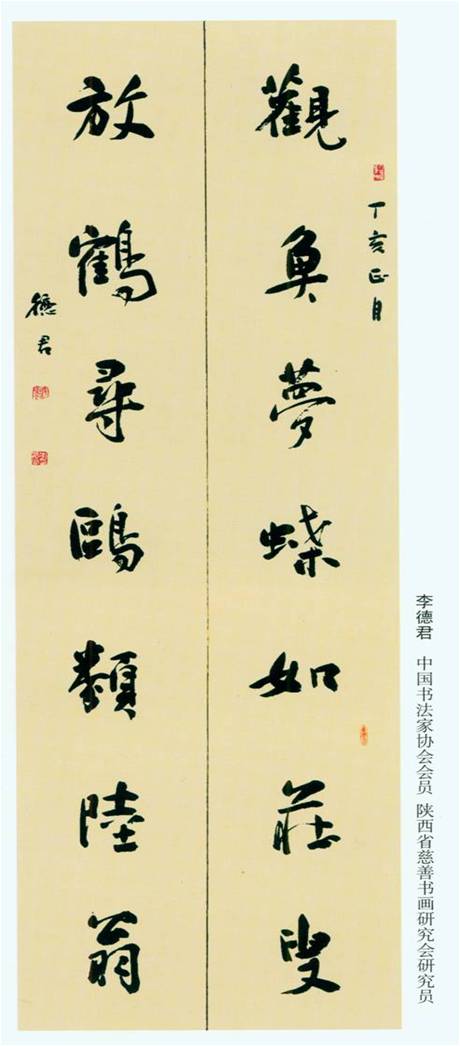 觀魚夢蝶如莊叟
丁亥正月
放鶴尋鷗類陸翁
德君
李德君 中国书法家协会会员 陕西省慈善书画研究会研究员